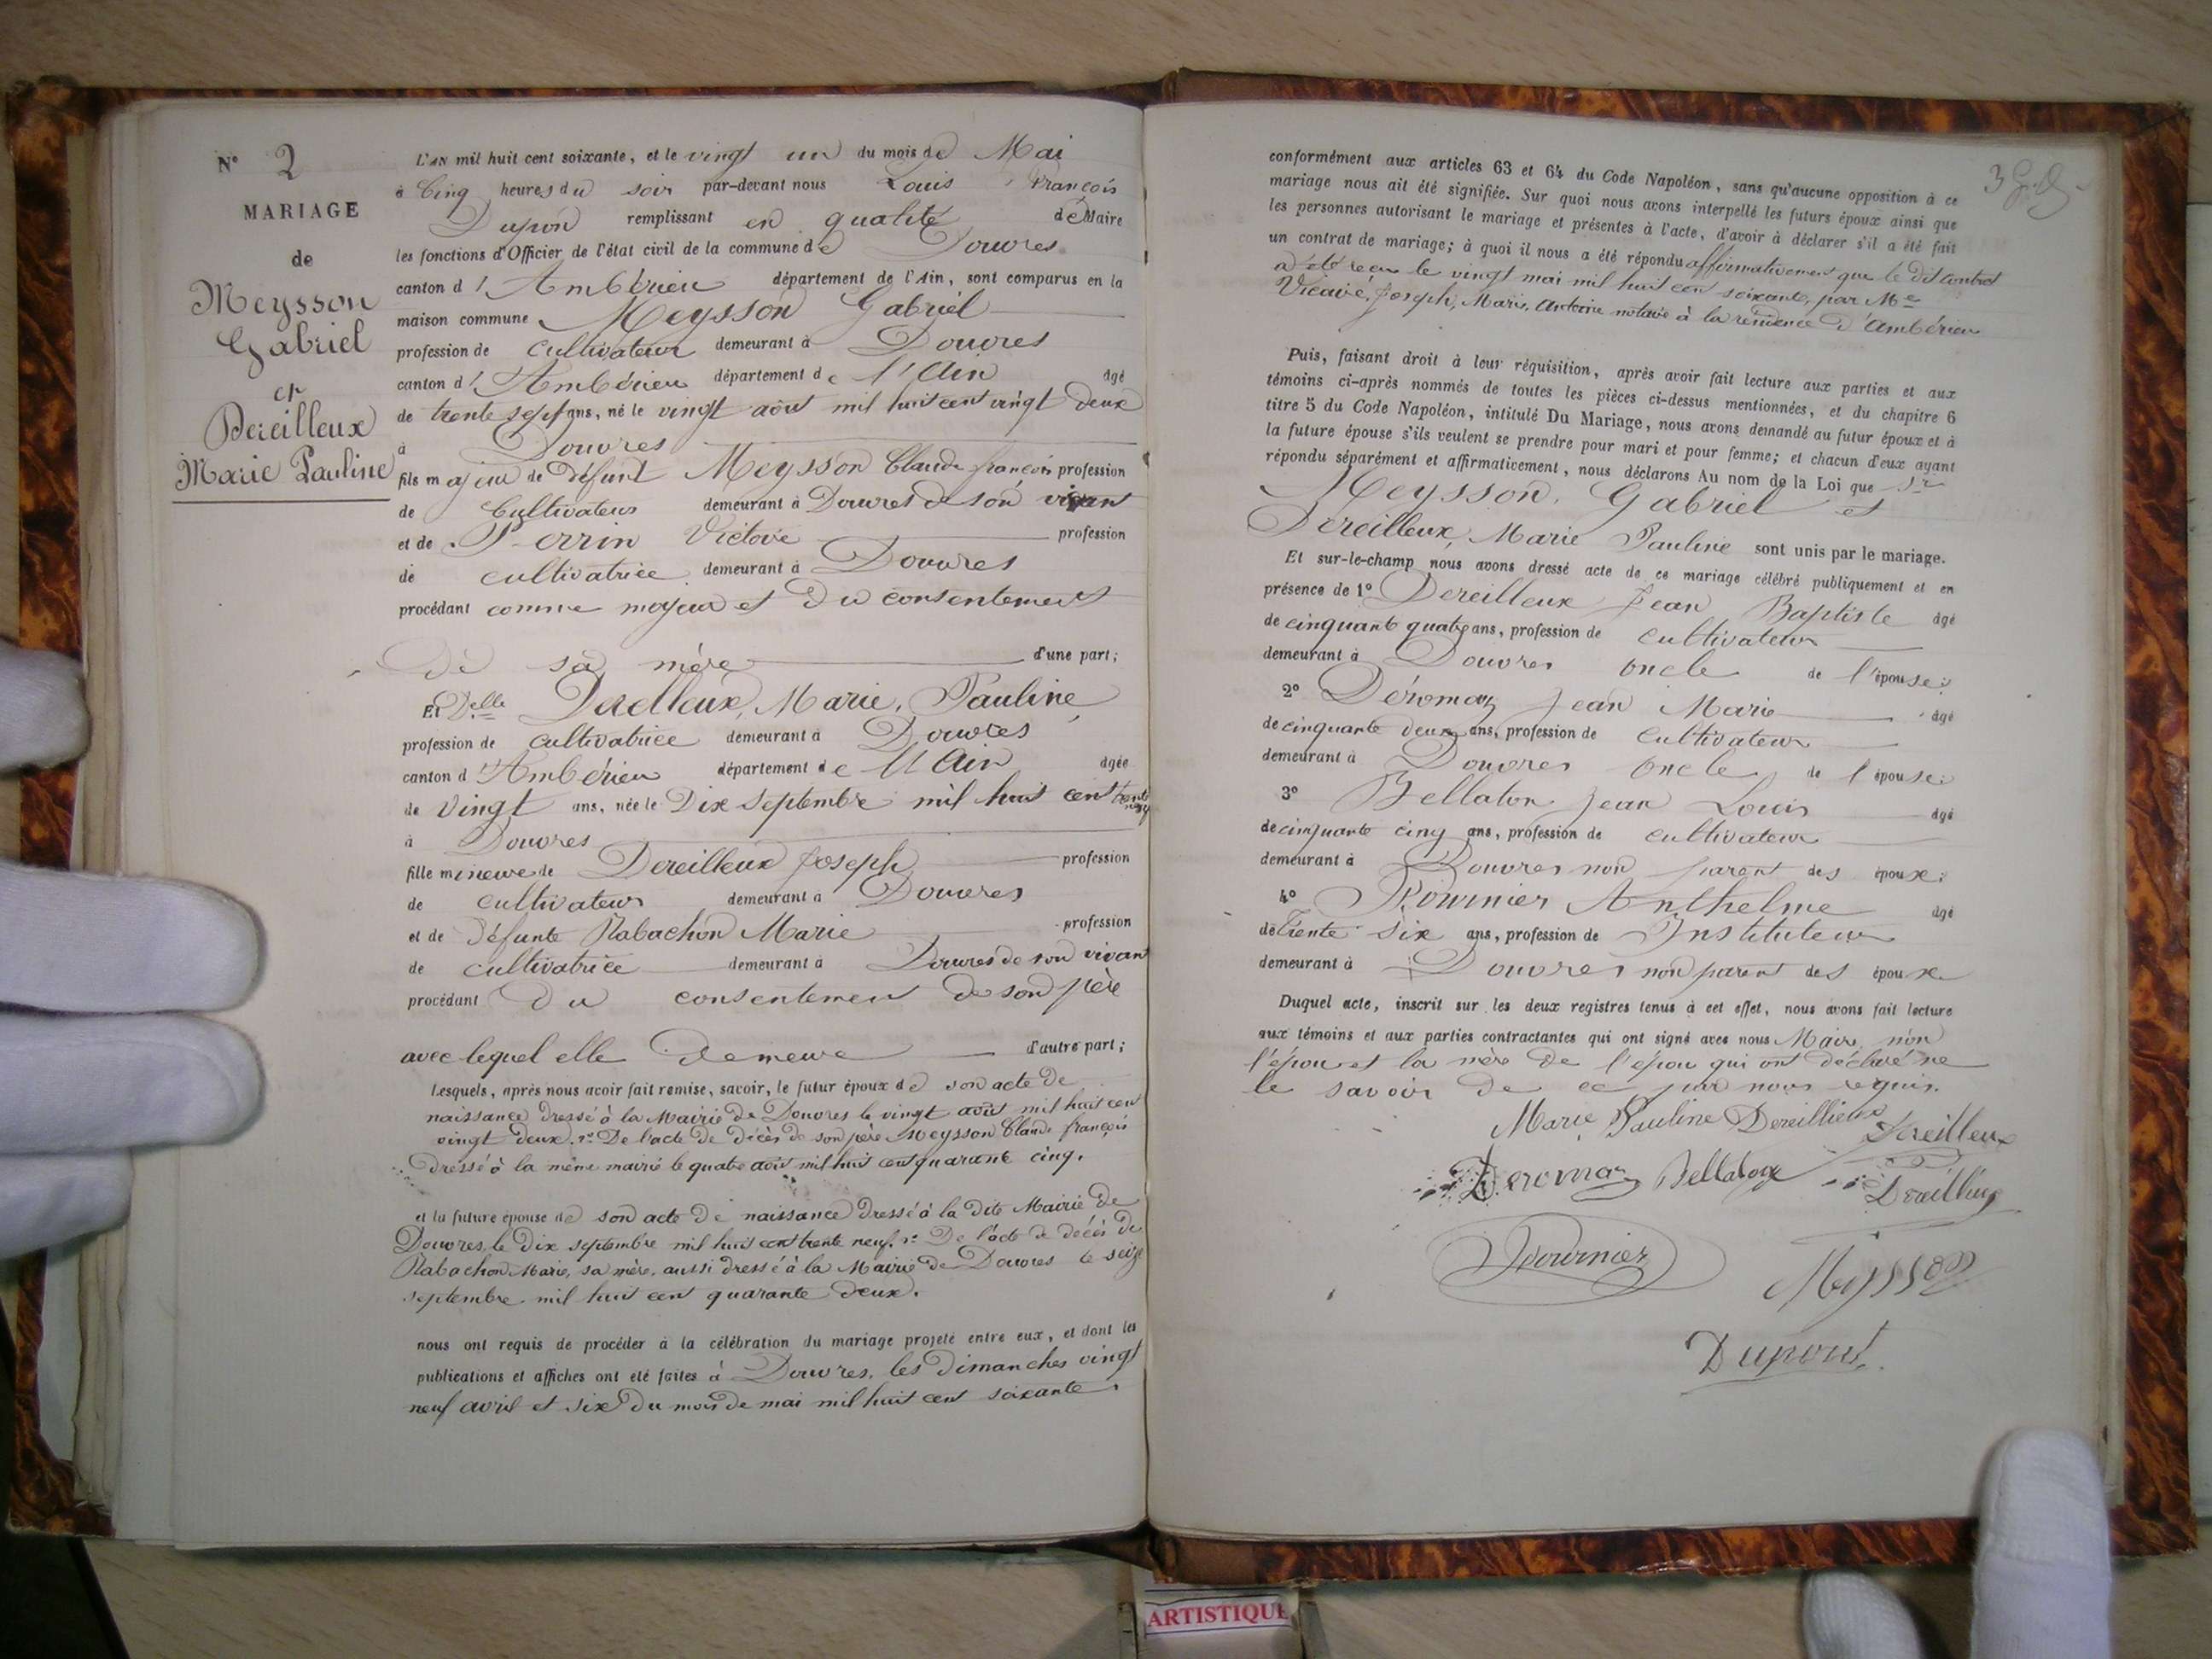 N° 2
MARIAGE
de
Meysson
Gabriel
et
Dereilleux
Marie Pauline
L'AN mil huit cent soixante, et le vingt un du mois de Mai
à Cinq heures du soir par-devant nous Louis François
Dupon remplissant en qualité de Maire
les fonctions d'Officier de l'état civil de la commune de Douvres
canton d'Ambérieu département de l'Ain, sont comparus en la
maison commune Meysson Gabriel
profession de cultivateur demeurant à Douvres
canton d'Ambérieu département de l'Ain âgé
de trente sept ans, né le vingt août mil huit cent vingt deux
à Douvres
fils majeur de défunt Meysson Claude françois profession
de Cultivateur demeurant à Douvres de son vivant
et de Perrin Victoire profession
de cultivatrice demeurant à Douvres
procédant comme majeur et du consentement
de sa mère d'une part;
Et Delle Dereilleux, Marie, Pauline
profession de cultivatrice demeurant à Douvres
canton d'Ambérieu département de l'Ain âgée
de vingt ans, née le Dix septembre mil huit cent trente neuf
à Douvres
fille mineure de Dereilleux Joseph profession
de cultivateur demeurant à Douvres
et de défunte Rabachon Marie profession
de cultivatrice demeurant à Douvres de son vivant
procédant du consentement de son père
avec lequel elle demeure d'autre part;
Lesquels, après nous avoir fait remise, savoir, le futur époux de son acte de
naissance dressé à la Mairie de Douvres le vingt août mil huit cent
vingt deux. 2° De l'acte de décès de son père Meysson Claude françois
dressé à la même mairie le quatre août mil huit cent quarante cinq.
et la future épouse de son acte de naissance dressé à la dite Mairie de
Douvres, le dix septembre mil huit cent trente neuf. 2° De l'acte de décès de
Rabachon Marie, sa mère, aussi dressé à la Mairie de Douvres le seize
septembre mil huit cent quarante deux.
nous ont requis de procéder à la célébration du mariage projeté entre eux, et dont les
publications et affiches ont été faites à Douvres, les dimanches vingt
neuf avril et six du mois de mai mil huit cent soixante.
3
conformément aux articles 63 et 64 du Code Napoléon, sans qu'aucune opposition à ce
mariage nous ait été signifiée. Sur quoi nous avons interpellé les futurs époux ainsi que
les personnes autorisant le mariage et présentes à l'acte, d'avoir à déclarer s'il a été fait
un contrat de mariage; à quoi il nous a été répondu affirmativement que le dit contrat
a été reçu le vingt mai mil huit cent soixante, par Me
Vicaire, Joseph, Marie, Antoine notaire à la résidence d'Ambérieu
Puis, faisant droit à leur réquisition, après avoir fait lecture aux parties et aux
témoins ci-après nommés de toutes les pièces ci-dessus mentionnées, et du chapitre 6
titre 5 du Code Napoléon, intitulé Du Mariage, nous avons demandé au futur époux et à
la future épouse s'ils veulent se prendre pour mari et pour femme; et chacun d'eux ayant
répondu séparément et affirmativement, nous déclarons Au nom de la Loi que Sr
Meysson, Gabriel et
Dereilleux, Marie Pauline sont unis par le mariage.
Et sur-le-champ nous avons dressé acte de ce mariage célébré publiquement et en
présence de 1° Dereilleux Jean Baptiste âgé
de cinquante quatre ans, profession de cultivateur
demeurant à Douvres oncle de l'épouse;
2° Déroman Jean Marie âgé
de cinquante deux ans, profession de cultivateur
demeurant à Douvres oncle de l'épouse;
3° Bellaton Jean Louis âgé
de cinquante cinq ans, profession de cultivateur
demeurant à Douvres non parent des époux;
4° Fournier Anthelme âgé
de Trente six ans, profession de Instituteur
demeurant à Douvres non parent des époux
Duquel acte, inscrit sur les deux registres tenus à cet effet, nous avons fait lecture
aux témoins et aux parties contractantes qui ont signé avec nous Maire, non
l'époux et la mère de l'époux qui ont déclaré ne
le savoir de ce par nous requis.
Marie Pauline Dereillieux Dereilleux
Deroman Bellaton Dereilleux
Fournier Meysson
Dupont
ARTISTIQUE